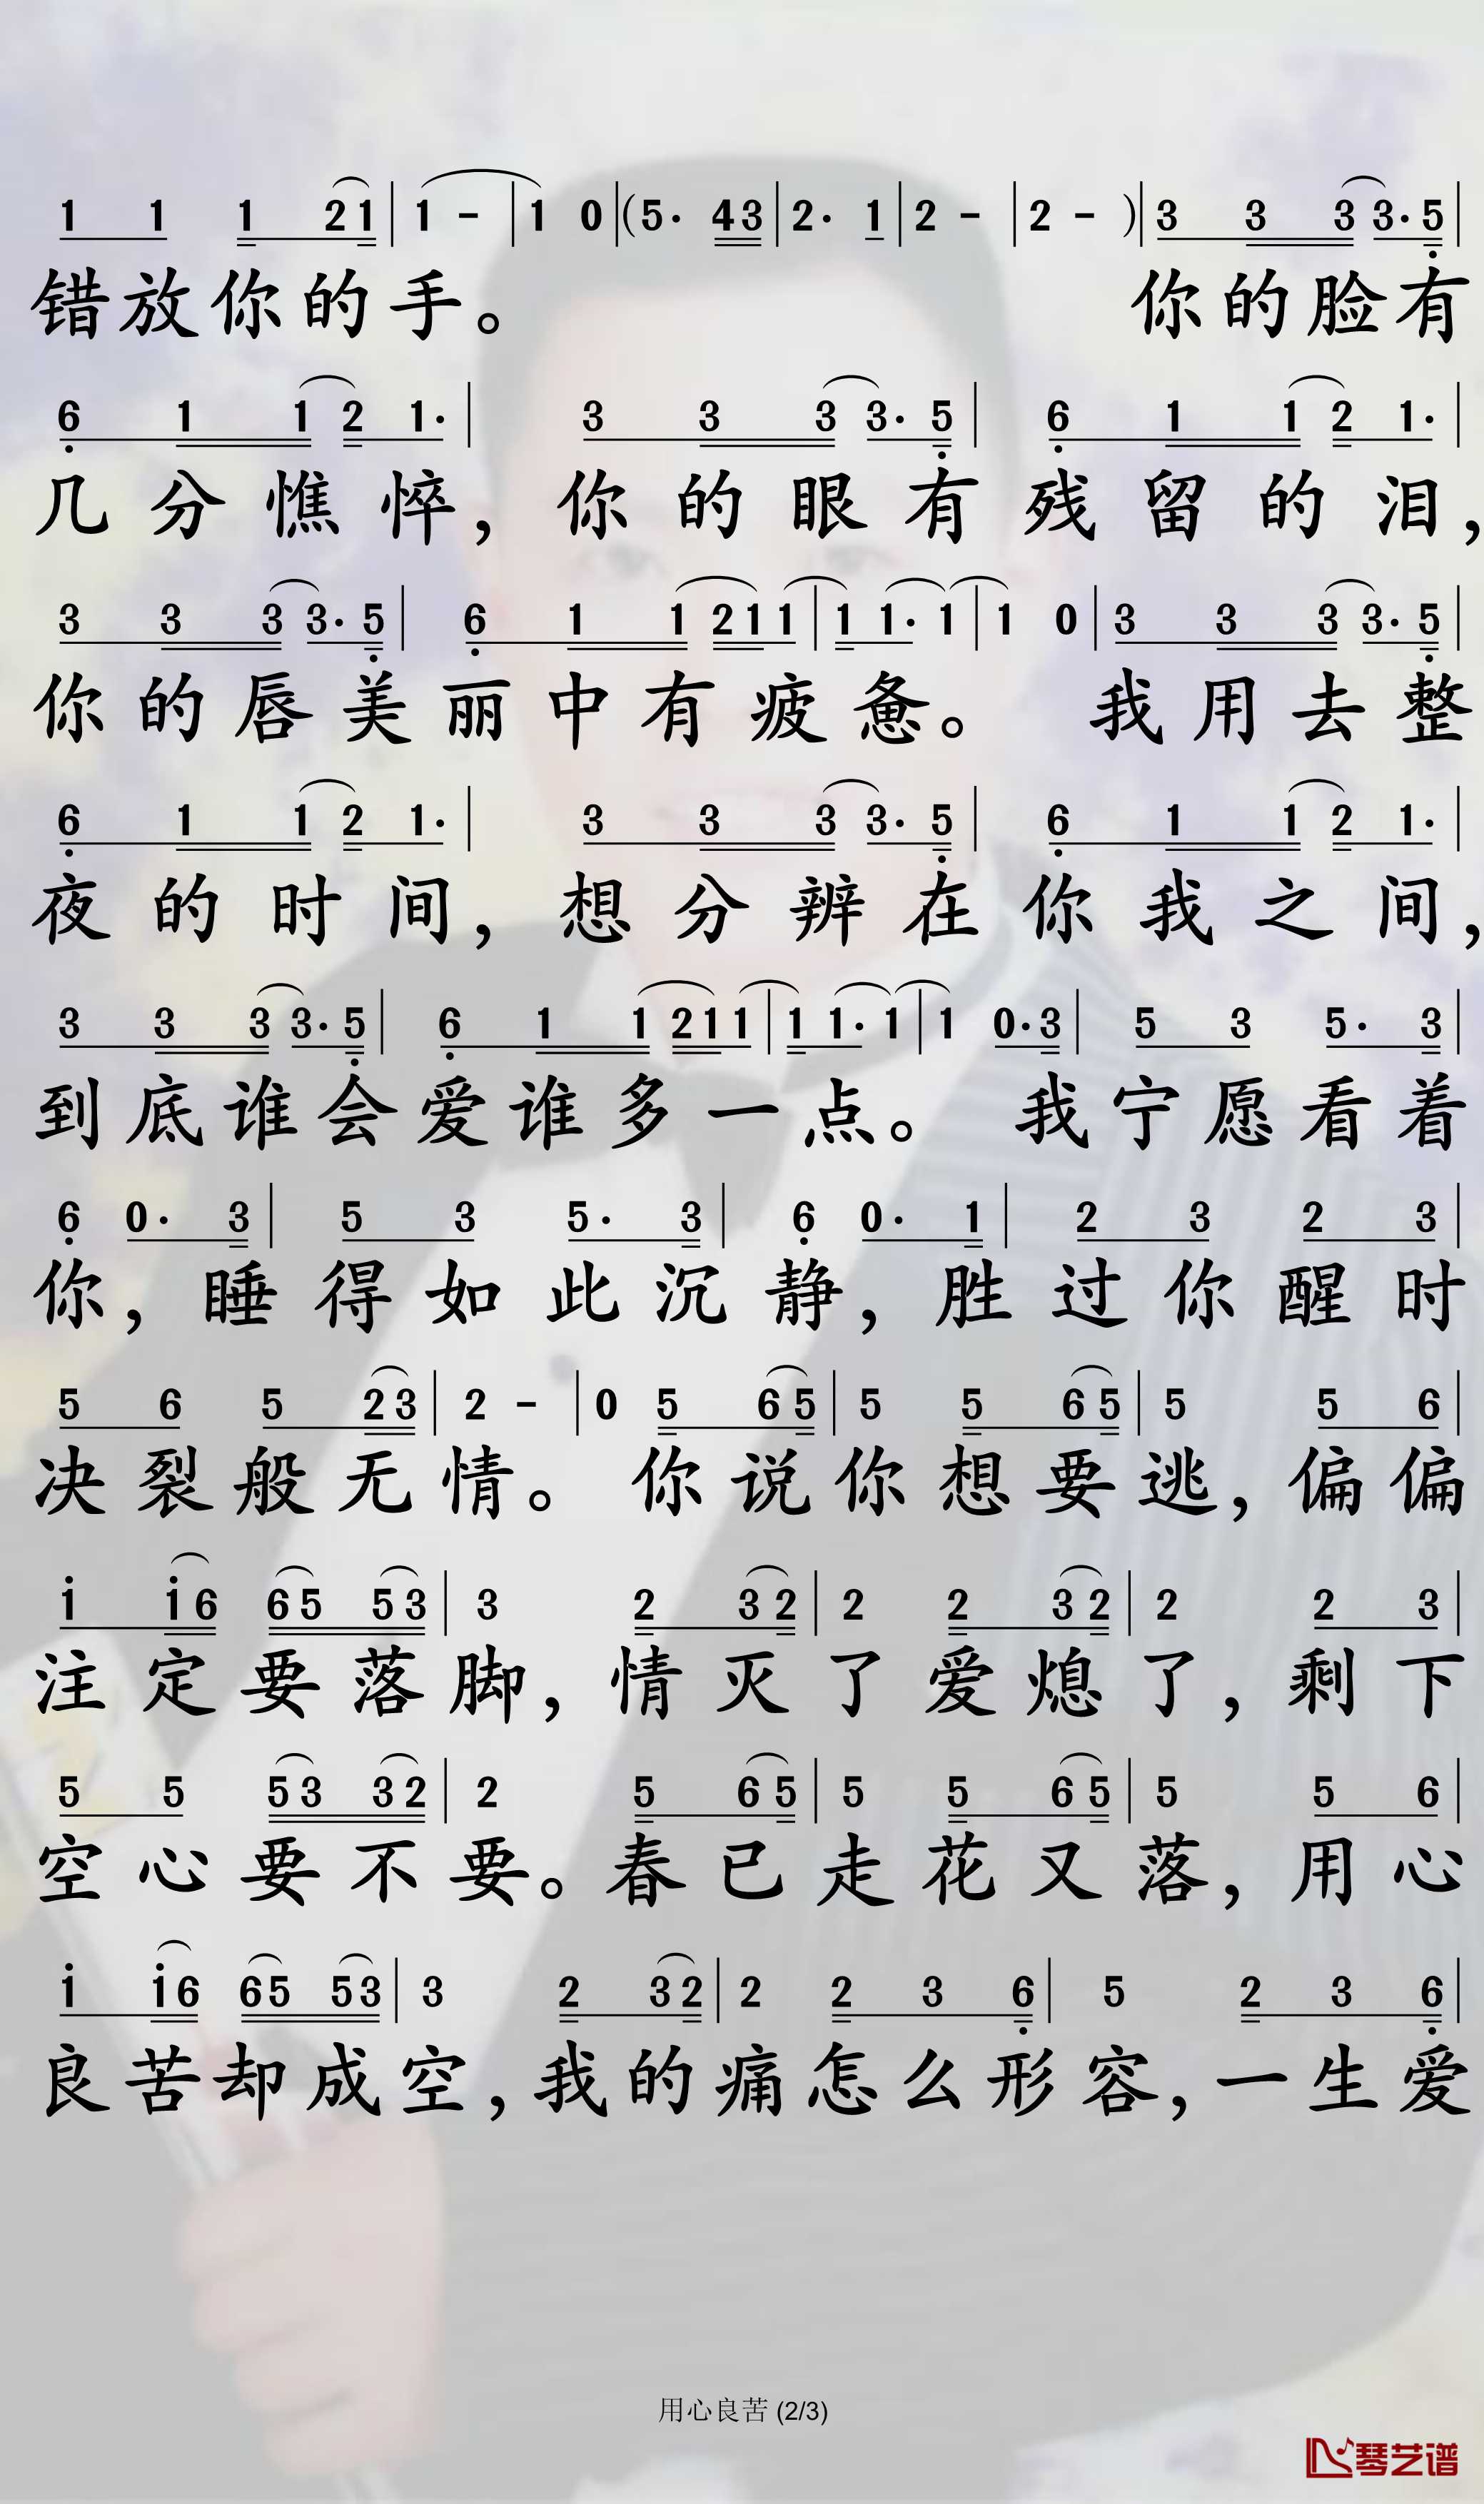 1 1 1 2 1 | 1 - | 1 0 | ( 5· 4 3 | 2· 1 | 2 - | 2 - ) | 3 3 3 3· 5 |
错放你的手。 你的脸有
6 1 1 2 1· | 3 3 3 3· 5 | 6 1 1 2 1· |
几分憔悴，你的眼有残留的泪，
3 3 3 3· 5 | 6 1 1 2 1 1 | 1 1· 1 | 1 0 | 3 3 3 3· 5 |
你的唇美丽中有疲惫。 我用去整
6 1 1 2 1· | 3 3 3 3· 5 | 6 1 1 2 1· |
夜的时间，想分辨在你我之间，
3 3 3 3· 5 | 6 1 1 2 1 1 | 1 1· 1 | 1 0· 3 | 5 3 5· 3 |
到底谁会爱谁多一点。 我宁愿看着
6 0· 3 | 5 3 5· 3 | 6 0· 1 | 2 3 2 3 |
你，睡得如此沉静，胜过你醒时
5 6 5 2 3 | 2 - | 0 5 6 5 | 5 5 6 5 | 5 5 6 |
决裂般无情。 你说你想要逃，偏偏
1 1 6 6 5 5 3 | 3 2 3 2 | 2 2 3 2 | 2 2 3 |
注定要落脚，情灭了爱熄了，剩下
5 5 5 3 3 2 | 2 5 6 5 | 5 5 6 5 | 5 5 6 |
空心要不要。春已走花又落，用心
1 1 6 6 5 5 3 | 3 2 3 2 | 2 2 3 6 | 5 2 3 6 |
良苦却成空，我的痛怎么形容，一生爱
用心良苦 (2/3)
琴艺谱